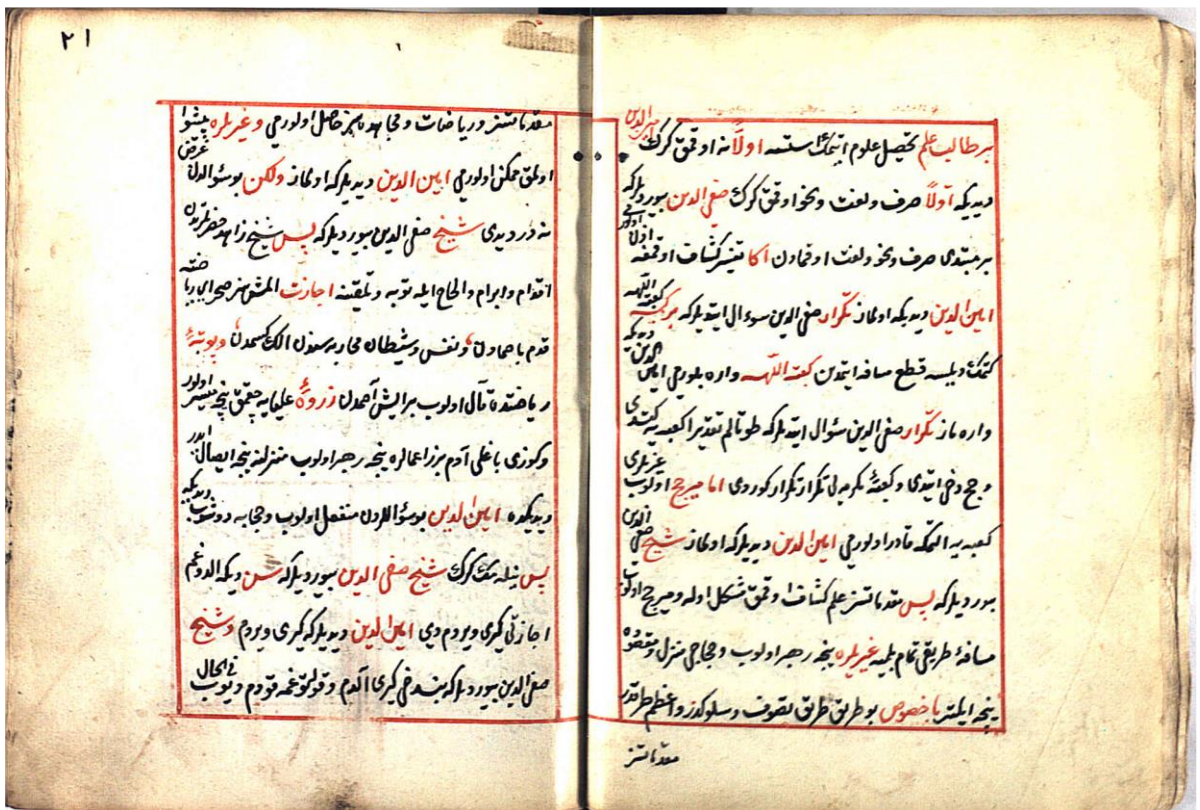 بر طالب علم تحصیل علوم ایتمك استسه اولاً نه اوقمق كرك امین الدین
دیدیكه اولاً صرف و لغت و نحو اوقمق كرك صفی الدین بیوردیلركه
بر مبتدی صرف و نحو و لغت اوقمادن اكا تیسیر كشاف اوقمغه اولا
امین الدین دیدیكه اولماز تكرار صفی الدین سوءال ایتدیلركه بر كیمسه كعبة اللهه
كتمك دیلسه قطع مسافه ایتمدن كعبة اللهه واره بلورمی امین الدین دیدیكه
وارەماز تكرار صفی الدین سئوال ایتدیلركه طوتالم تقدیرا كعبه یه كتدی
و حج دخی ایتدی و كعبۀ مكرمه یی تكرار تكرار كوردی اما میر حج اولوب غیریلری
كعبه یه ایلتمكه قادر اولورمی امین الدین دیدیلركه اولماز شیخ صفی الدین
بیوردیلركه پس مقدماتسز علم كشاف اوقمق مشكل اوله و میر حج اولوب
مسافۀ طریقی تمام بلمیه غیریلره نیجه رهبر اولوب و حجاجی منزل مقصوده
نیجه ایلتر با خصوص بو طریق طریق تصوف و سلوكدر و اعظم طرقدر
مقدماتسز
٢١
مقدماتسز و ریاضات و مجاهده سز حاصل اولورمی و غیریلره پیشوا
اولمق ممكن اولورمی امین الدین دیدیلركه اولماز ولكن بو سئوالدن غرض
نه در دیدی شیخ صفی الدین بیوردیلركه پس شیخ زاهد حضرتلرندن
اقدام و ابرام و الحاح ایله توبه و تلقینه اجازت المشسز صحرای ریاضته
قدم باصمادن و نفس و شیطان محاربه سندن الك كسمدن و بوتۀ
ریاضتده قال اولوب بر ایش آچمدن ذروۀ علیایه چقمق نیجه میسر اولور
و كوزی باغلی آدم برر اعمالره نیجه رهبر اولوب منزلنه نیجه ایصال ایدر
دیدیكده امین الدین بو سؤاللردن منفعل اولوب و حجابه دوشوب دیدیكه
پس نیله مك كرك شیخ صفی الدین بیوردیلركه سن دیكه الدوغم
اجازتی كیری ویردم دی امین الدین دیدیلركه كیری ویردم و شیخ
صفی الدین بیوردیلركه بن دخی كیری آلدم و قولتوغمه قودم دیوب فی الحال